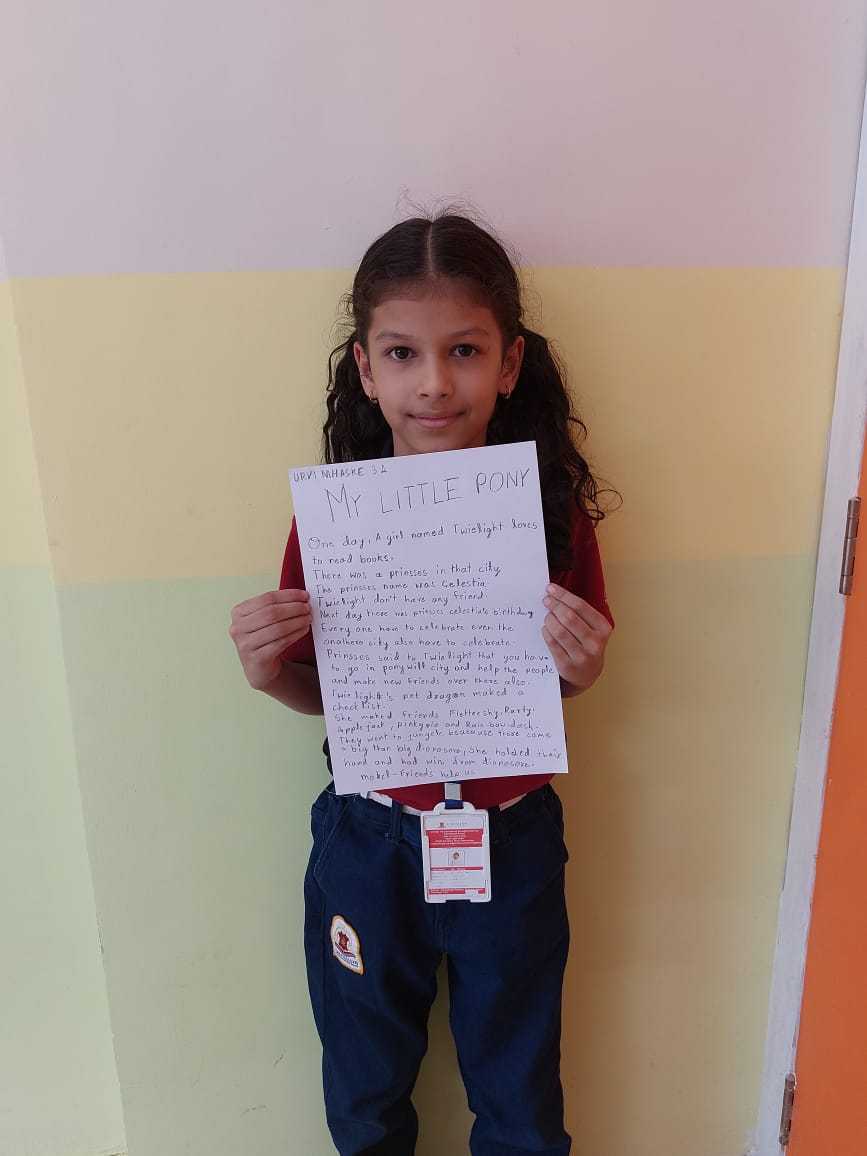 URVI MHASKE 3A
MY LITTLE PONY
One day, A girl named Twielight loves
to read books.
There was a prinsses in that city
The prinsses name was Celestia
Twielight don't have any friend
Next day there was prinsses celestia's birthday
Every one have to celebrate even the
anathero city also have to celebrate.
Prinsses said to Twielight that you have
to go in ponywill city and help the people
and make new friends over there also.
Twielight's pet dragon maked a
checklist.
She maked friends Flettershy, Rarty,
applejack, pinkypie and Rain-bow-dash.
They went to jungele beacause there came
a big than big dionosore, She holded their
hand and had win from dionosore.
model - Friends help us